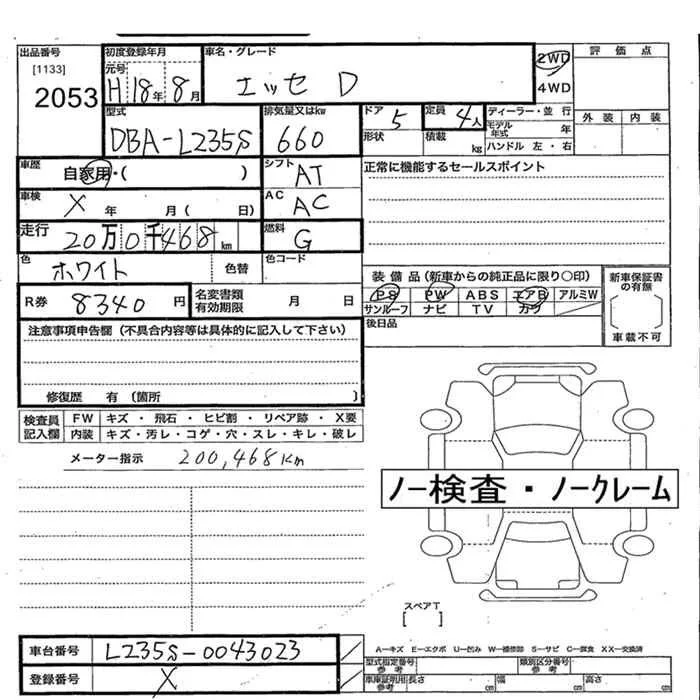 出品番号 初度登録年月 車名・グレード 評価点
[1133] 元号 2WD
2053 H 18年 8月 エッセ D 4WD
型式 排気量又はkw ドア 定員 ディーラー・並行 外装 内装
DBA-L235S 660 5 4人 モデル年式 年
形状 積載 kg ハンドル 左・右
車歴 自家用・( ) シフト AT 正常に機能するセールスポイント
車検 X 年 月 ( 日) AC AC
走行 20万0千468km 燃料 G
色 ホワイト 色替 色コード 装備品(新車からの純正品に限り○印) 新車保証書の有無
R券 8340円 名変書類有効期限 月 日 PS PW ABS エアB アルミW
サンルーフ ナビ TV カワ
後日品 車載不可
注意事項申告欄(不具合内容等は具体的に記入して下さい)
修復歴 有 (箇所 )
検査員 FW キズ・飛石・ヒビ割・リペア跡・X要
記入欄 内装 キズ・汚レ・コゲ・穴・スレ・キレ・破レ
メーター指示 200,468km
ノー検査・ノークレーム
スペアT
[ ]
車台番号 L235S-0043023 A-キズ E-エクボ U-凹み W-補修跡 S-サビ C-腐食 XX-交換済
登録番号 X 型式指定番号 参考 類別区分番号 参考
車庫証明用 参考 長さ cm 幅 cm 高さ cm